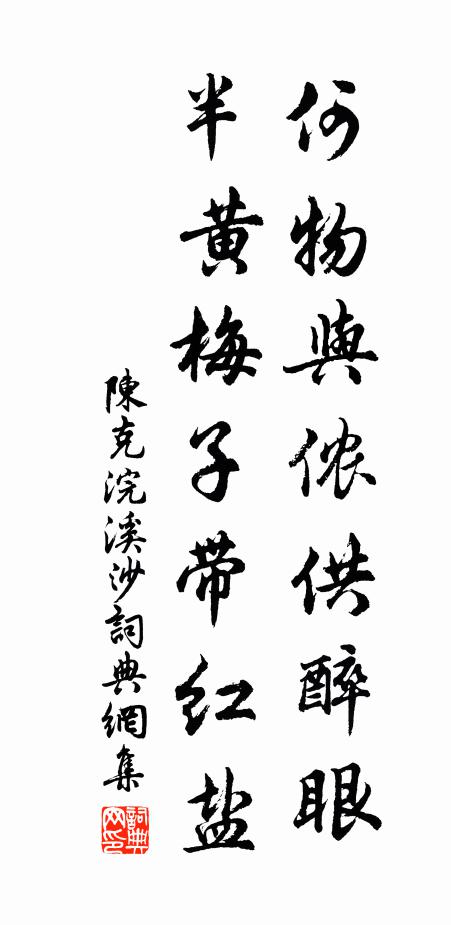 何物與侬供醉眼
半黄梅子带红盐
陳克浣溪沙詞典網集
詞典网印